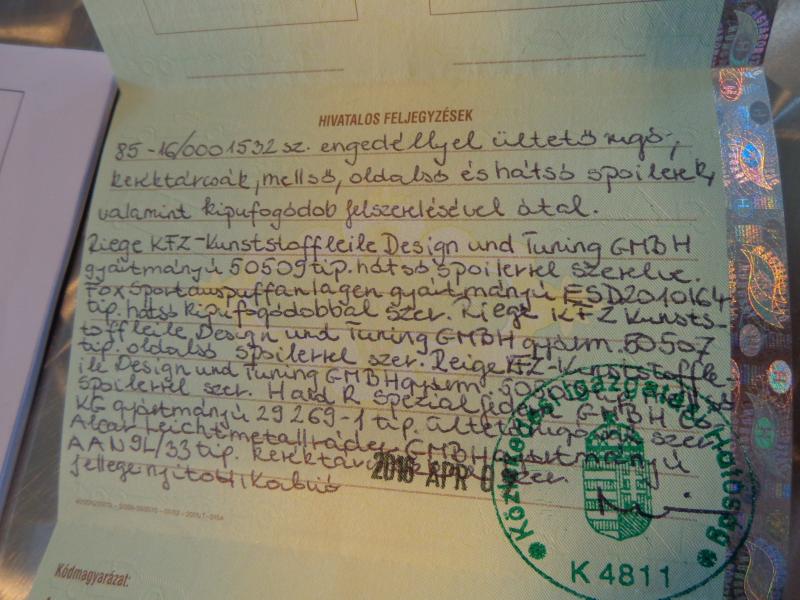 HIVATALOS FELJEGYZÉSEK
85-16/0001532 sz. engedéllyel ültető rugó,
keréktárcsák, mellső, oldalsó és hátsó spoilerek,
valamint kipufogódob felszerelésével átal.
Riege KFZ-Kunststoffleile Design und Tuning GMBH
gyártmányú 50509 tip. hátsó spoilerrel szerelve.
Fox Sportauspuffanlagen gyártmányú ESD2010164
tip. hátsó kipufogódobbal szer. Riege KFZ Kunsts-
stoffleile Design und Tuning GMBH gyárm. 50507
tip. oldalsó spoilerrel szer. Reige KFZ-Kunststoffle-
ile Design und Tuning GMBH gyárm.
spoilerrel szer. Hard R Spezialfedern GMBH Co,
KG gyártmányú 29 269-1 tip. ültető rugóval szer.
Alcar Leichtmetallräder GMBH gyártmányú
AAN9L/33 tip. szer.
jellege nyitott, Kabrió
2016 APR 0
Közlekedési Igazgatási Hatóság
K 4811
Kódmagyarázat: